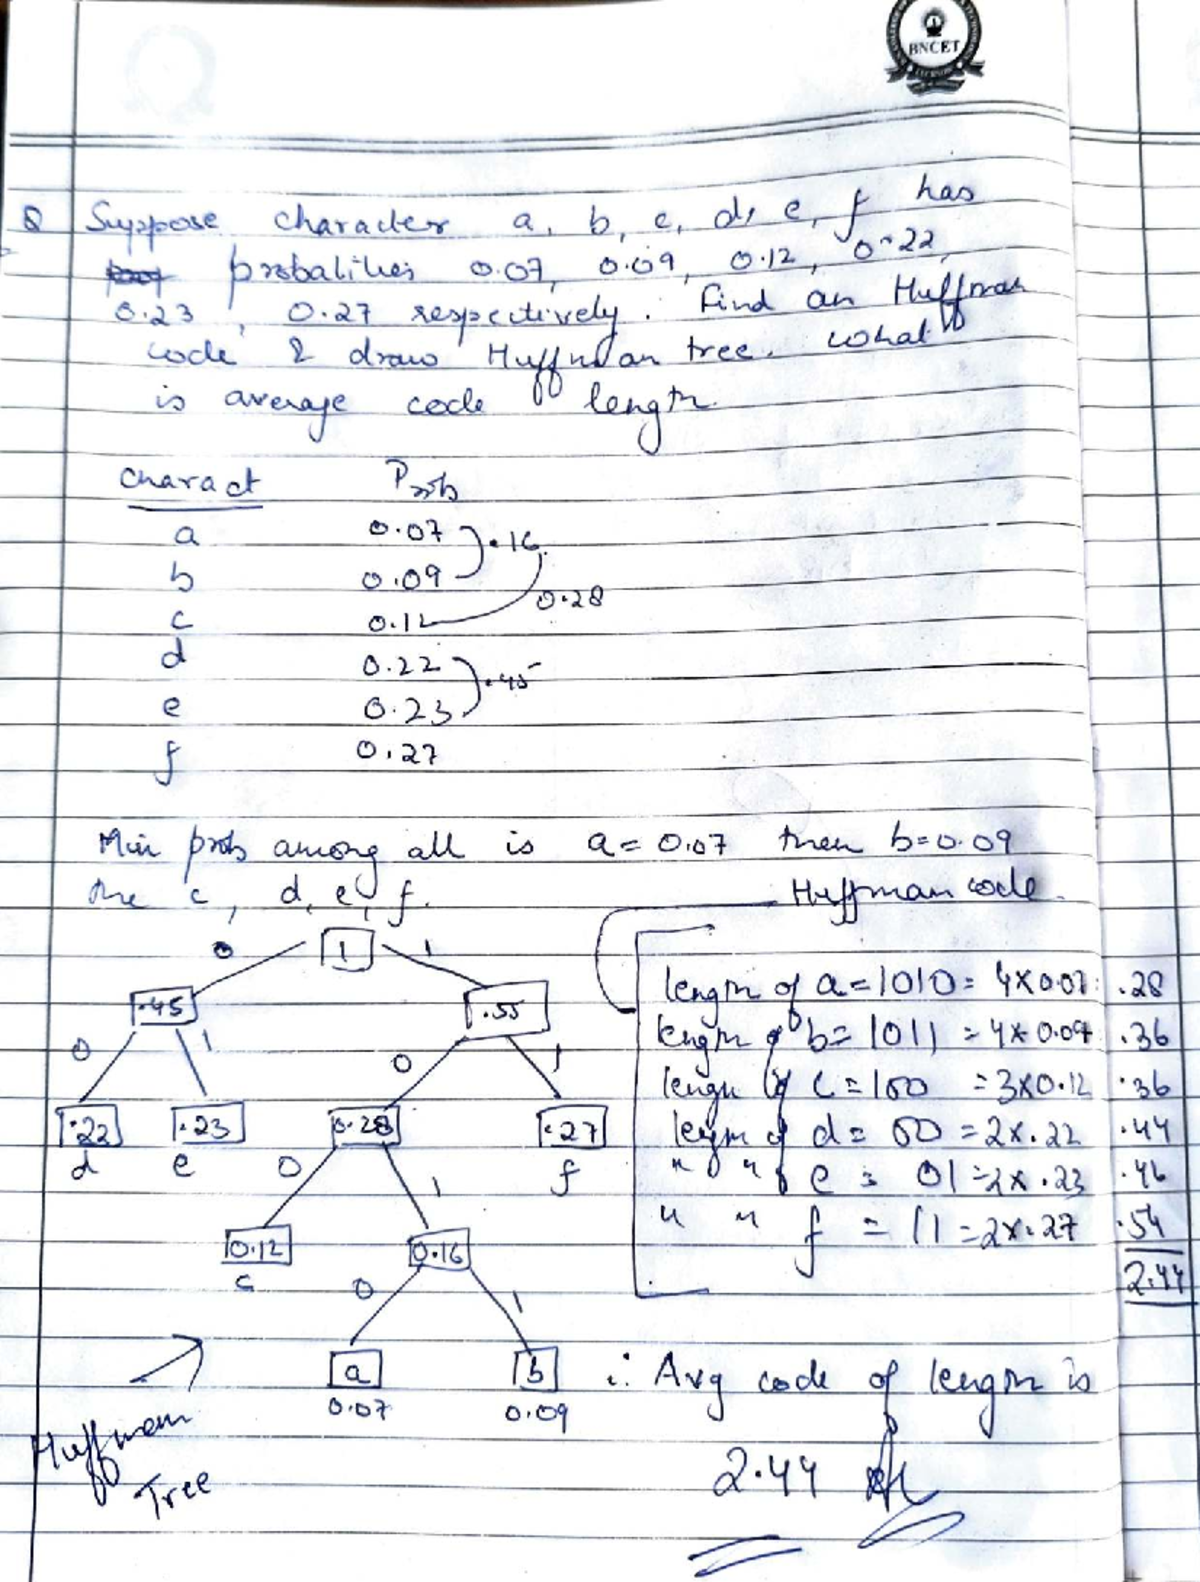 BNCET
Q Suppose character a, b, c, d, e, f has
probalities 0.07, 0.09, 0.12, 0.22,
0.23, 0.27 respectively. Find an Huffman
code & draw Huffman tree. what
is average code length.
Charact Prob
a 0.07
.16
b 0.09
0.28
c 0.12
d 0.22
.45
e 0.23
f 0.27
Min prob among all is a = 0.07 then b=0.09
the c, d, e, f.
Huffman code.
0 1 1
.45 .55
0 1 0 1
.22 .23 0.28 .27
d e f
0 1
0.12 0.16
c
0 1
a b
0.07 0.09
Huffman
Tree
length of a = 1010 = 4×0.07 .28
length of b = 1011 = 4×0.09 .36
length of c = 100 = 3×0.12 .36
length of d = 00 = 2×.22 .44
" " f e = 01 = 2×.23 .46
" " f = 11 = 2×.27 .54
2.44
∴ Avg code of length is
2.44